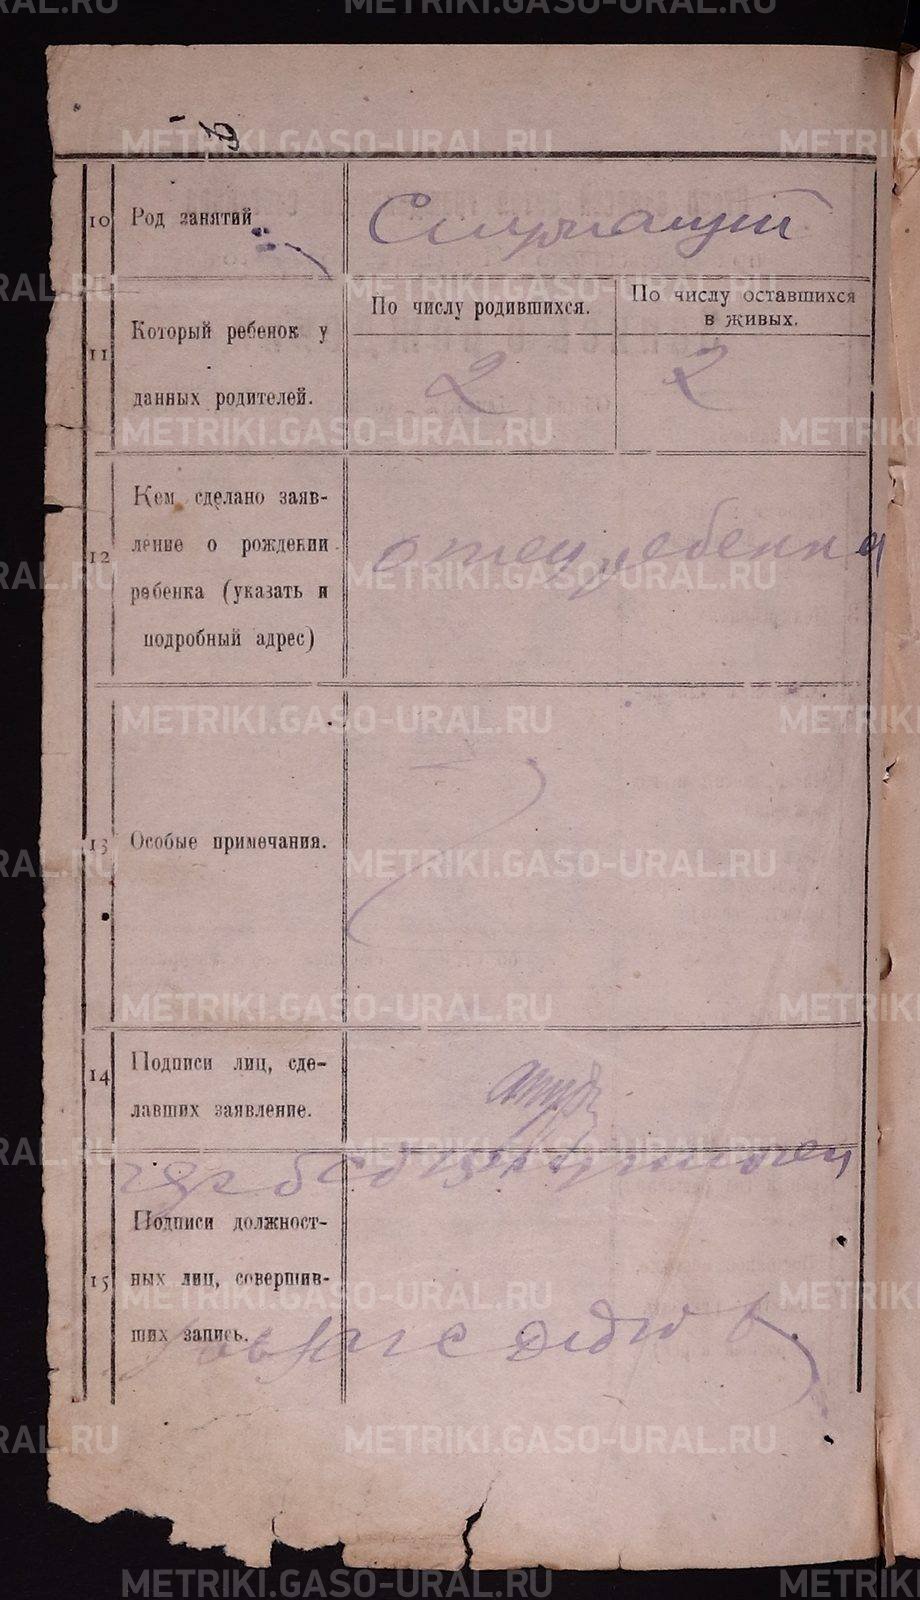 METRIKI.GASO-URAL.RU
10 Род занятий Служащий
11 Который ребенок у данных родителей.
По числу родившихся. По числу оставшихся в живых.
2 2
12 Кем сделано заяв-
ление о рождении
ребенка (указать и
подробный адрес)
отец ребенка
13 Особые примечания.
14 Подписи лиц, сде-
лавших заявление.
15 Подписи должност-
ных лиц, совершив-
ших запись.